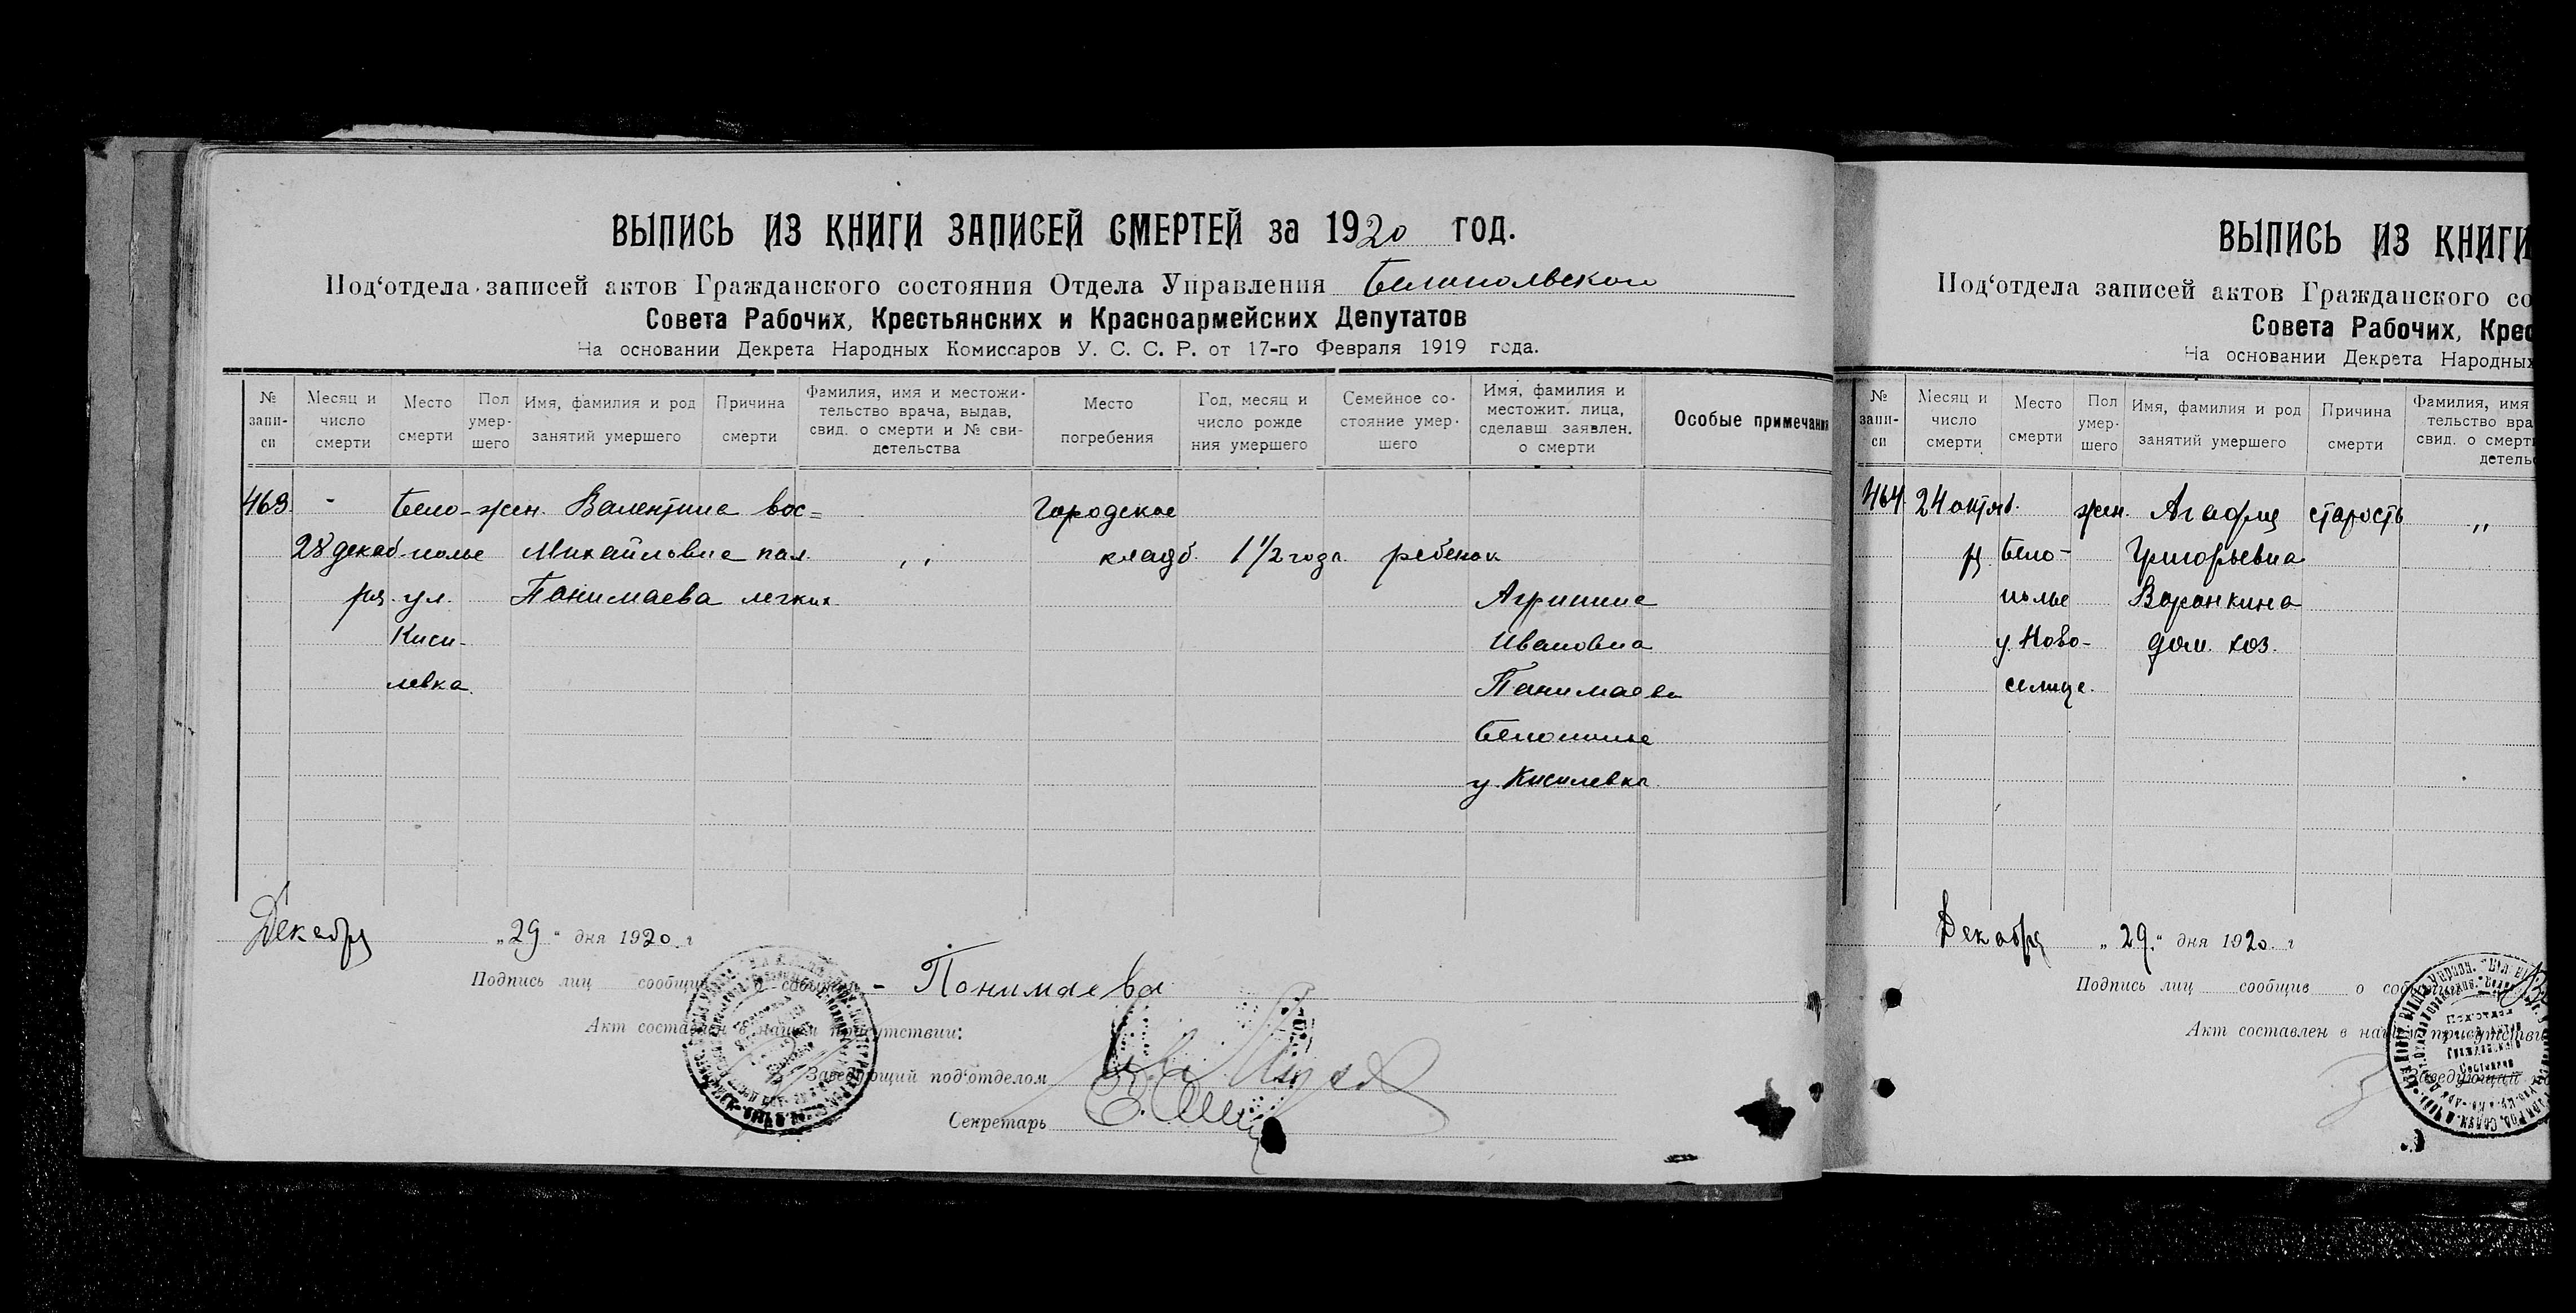 ВЫПИСЬ ИЗ КНИГИ ЗАПИСЕЙ СМЕРТЕЙ за 1920 год.
Под‘отдела записей актов Гражданского состояния Отдела Управления Белопольского
Совета Рабочих, Крестьянских и Красноармейских Депутатов
На основании Декрета Народных Комиссаров У. С. С. Р. от 17-го Февраля 1919 года.
№ запи-си
Месяц и число смерти
Место смерти
Пол умер-шего
Имя, фамилия и род занятий умершего
Причина смерти
Фамилия, имя и местожи-тельство врача, выдав. свид. о смерти и № сви-детельства
Место погребения
Год, месяц и число рожде ния умершего
Семейное со-стояние умер-шего
Имя, фамилия и местожит. лица, сделавш. заявлен. о смерти
Особые примечания
463. - Бело- жен. Валентина вос=
Городское
28 декаб полье Михайловна пал. ,, кладб. 1 1/2 года. ребенок
ря ул. Панимаева легких
Агриппина
Киси-
Ивановна
левка.
Панимаева
Белополье
у. Кисилевка.
Декабря „29“ дня 1920 г
Подпись лиц сообщив о событии - Понимаева
Акт составлен в нашем присутствии:
Заведующий под‘отделом
Секретарь
ВЫПИСЬ ИЗ КНИГИ
Под‘отдела записей актов Гражданского со
Совета Рабочих, Крес
На основании Декрета Народных
№ запи-си
Месяц и число смерти
Место смерти
Пол умер-шего
Имя, фамилия и род занятий умершего
Причина смерти
Фамилия, имя тельство вра свид. о смерт детель
464. 24 октяб. жен. Агафия старость ,,
ря. Бело- Григорьевна
полье Воронкина
у. Ново- дом. хоз.
селице.
Декабря „29.“ дня 1920. г
Подпись лиц сообщив о соб
Акт составлен в нашем присутстви
Заведующий по